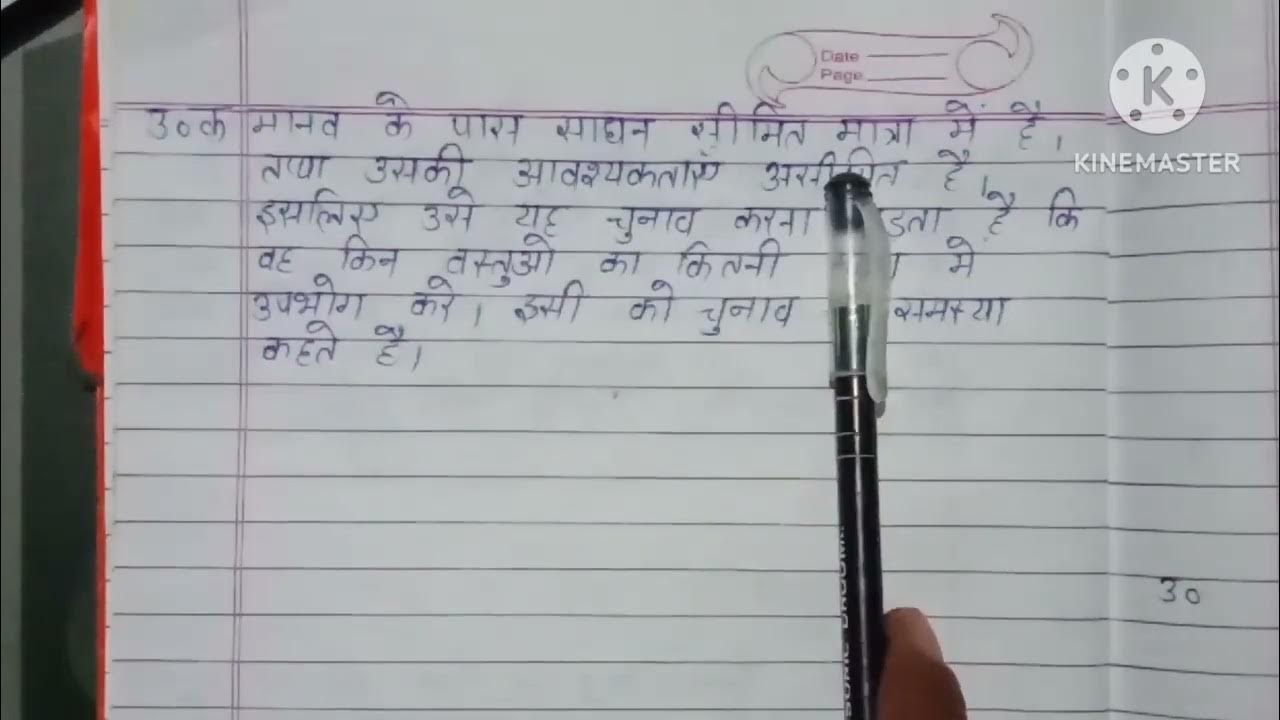 Date
Page
KINEMASTER
30क मानव के पास साधन सीमित मात्रा में है,
तथा उसकी आवश्यकताएँ असीमित है,
इसलिए उसे यह चुनाव करना है कि
वह किन वस्तुओ का कितनी में
उपभोग करे। इसी को चुनाव समस्या
कहते है।
30